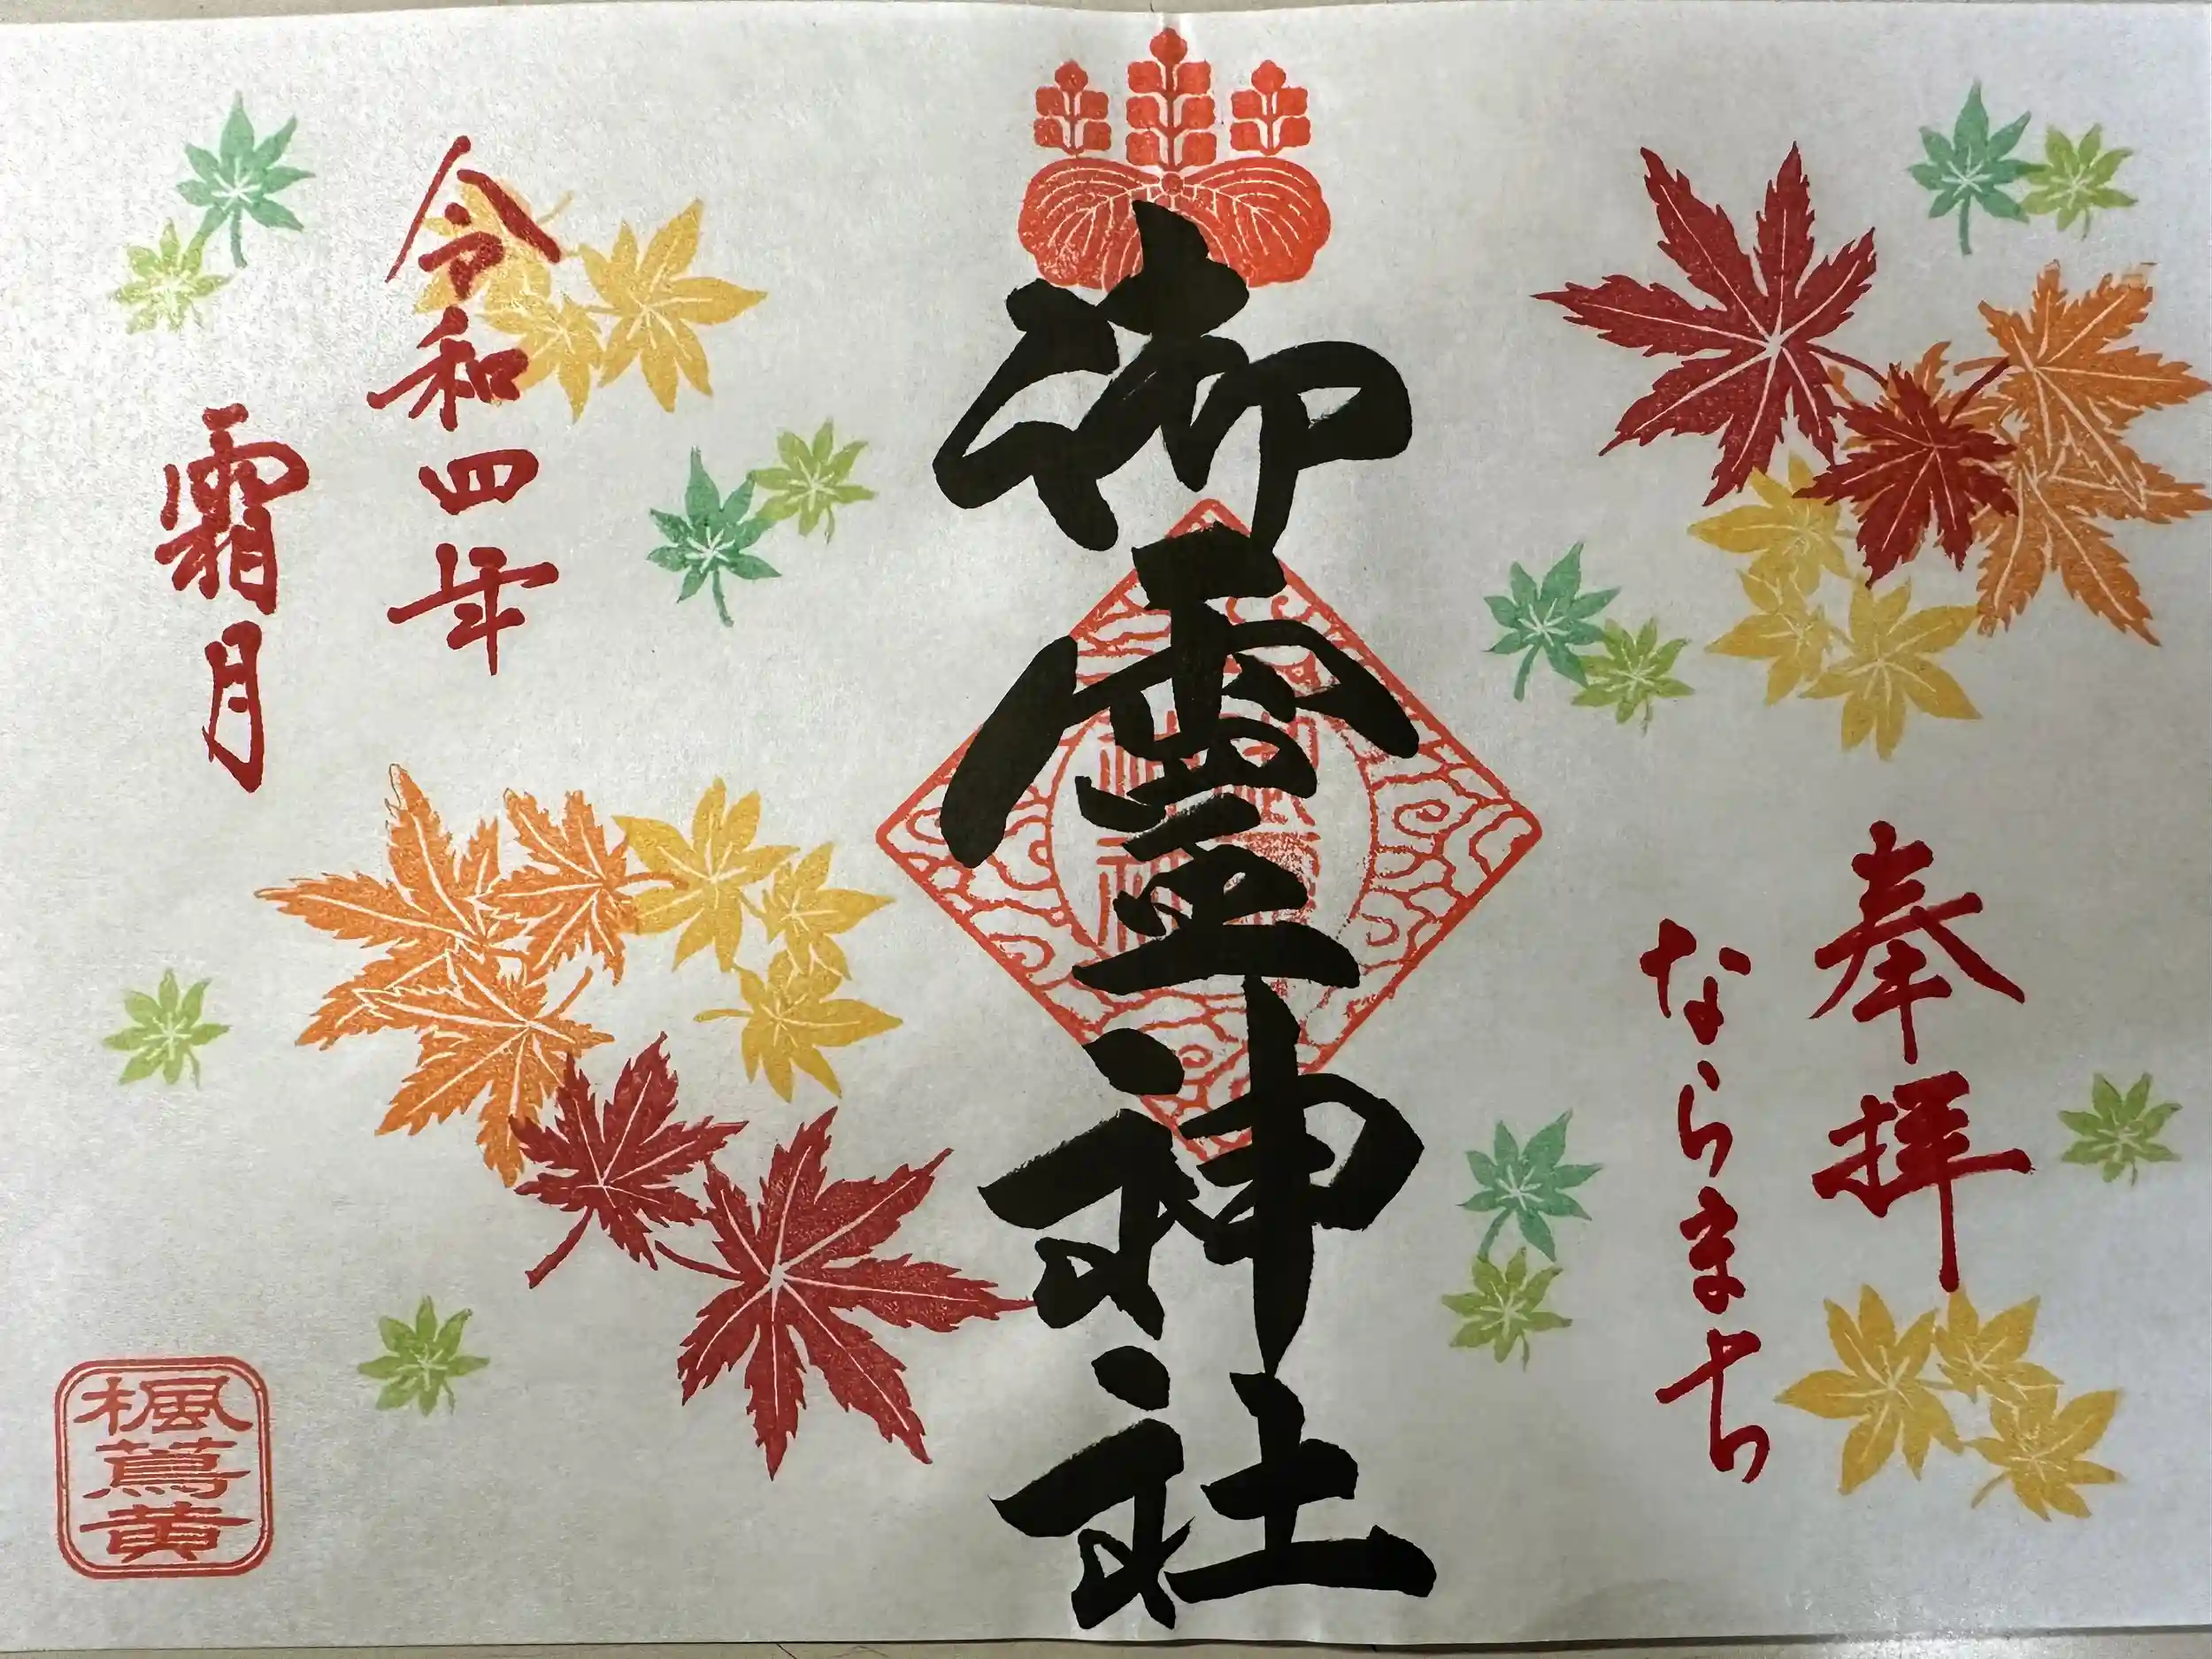 奉拝
ならまち
御霊神社
令和四年
霜月
楓蔦黄